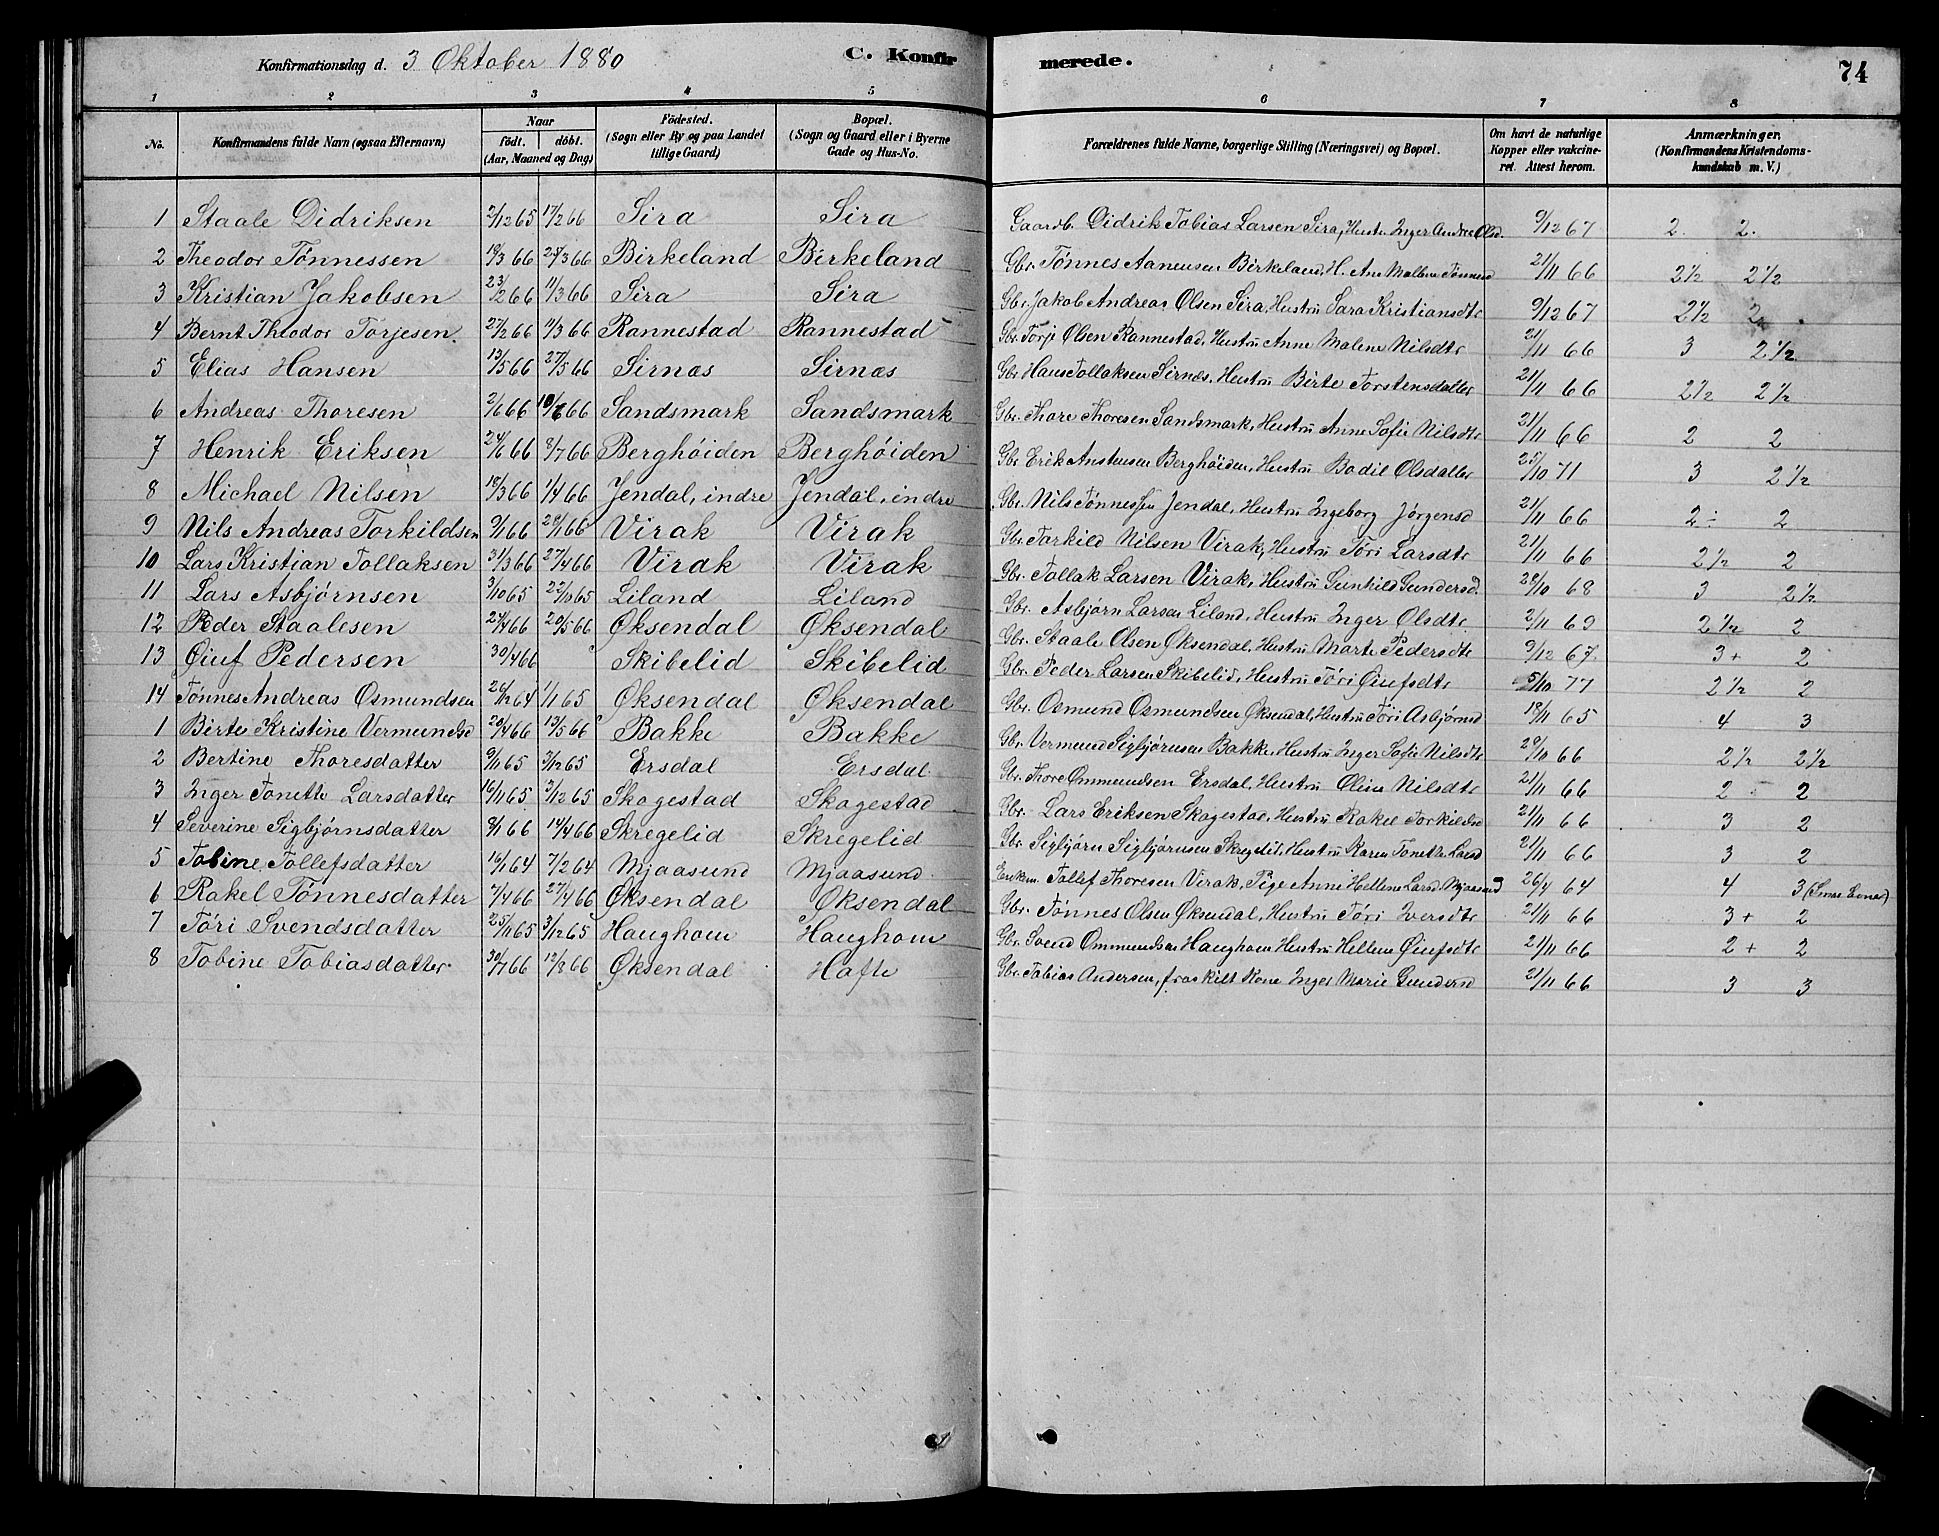 Konfirmationsdag d. 3 Oktober 1880 C. Konfirmerede. 74
1 2 3 4 5 6 7 8
No. Konfirmandens fulde Navn (ogsaa Efternavn) Naar födt. döbt. (Aar, Maaned og Dag) Födested. (Sogn eller By og paa Landet tillige Gaard) Bopæl. (Sogn og Gaard eller i Byerne Gade og Hus-No. Forældrenes fulde Navne, borgerlige Stilling (Næringsvei) og Bopæl. Om havt de naturlige Kopper eller vakcineret. Attest herom. Anmærkninger. (Konfirmandens Kristendomskundskab m. V.)
1 Staale Didriksen 2/12 65 17/2 66 Sira Sira Gaardb. Didrik Tobias Larsen Sira, Hustr. Inger Andrea Olsd. 9/12 67 2. 2.
2 Theodor Tønnessen 10/3 66 24/3 66 Birkeland Birkeland Gbr. Tønnes Aanensen Birkeland, H. Ane Malene Tønnesd 21/11 66 2 1/2 2 1/2
3 Kristian Jakobsen 23/2 66 11/3 66 Sira Sira Gbr. Jakob Andreas Olsen Sira, Hustru Sara Kristiansdtr 9/12 67 2 1/2 2
4 Bernt Theodor Torjesen. 27/2 66 11/3 66 Rannestad Rannestad Gbr. Torje Olsen Rannestad, Hustru Anne Malene Nilsdtr 21/11 66 3 2 1/2
5 Elias Hansen 13/5 66 27/5 66 Sirnæs Sirnæs Gbr. Hans Tollaksen Sirnæs, Hustru Birte Torstensdatter 21/11 66 2 1/2 2 1/2
6 Andreas Thoresen 2/6 66 10/6 66 Sandsmark Sandsmark Gbr. Thore Thoresen Sandsmark, Hustru Anne Sofie Nilsdtr 21/11 66 2 2
7 Henrik Eriksen 24/6 66 8/7 66 Berghöiden Berghöiden Gbr. Erik Anstensen Berghöiden, Hustru Bodil Olsdatter 25/10 71 3 2 1/2
8 Michael Nilsen 18/3 66 1/4 66 Jendal, indre Jendal, indre Gbr. Nils Tønnessen Jendal, Hustru Ingeborg Jörgensd 21/11 66 2 ÷ 2
9 Nils Andreas Torkildsen 9/1 66 28/1 66 Virak Virak Gbr. Torkild Nilsen Virak, Hustru Töri Larsdtr 21/11 66 2 1/2 2
10 Lars Kristian Tollaksen 31/3 66 27/4 66 Virak Virak Gbr. Tollak Larsen Virak, Hustru Gunhild Gundersd. 28/10 68 3 2 1/2
11 Lars Asbjørnsen 3/10 65 22/10 65 Liland Liland Gbr. Asbjørn Larsen Liland, Hustru Inger Olsdtr 2/11 69 2 1/2 2
12 Peder Staalesen 24/4 66 20/5 66 Øksendal Øksendal Gbr. Staale Olsen Øksendal, Hustru Marte Pedersdtr 9/12 67. 3+ 2
13 Øiuf Pedersen 30/4 66 Skibelid Skibelid Gbr. Peder Larsen Skibelid, Hustru Töri Øiufsdtr 5/10 77 2 1/2 2
14 Tønnes Andreas Osmundsen 26/12 64 1/1 65 Øksendal Øksendal Gbr. Osmund Osmundsen Øksendal, Hustru Töri Asbjørnsd 18/11 65 4 3
1 Birte Kristine Vermundsd 20/4 66 13/5 66 Bakke Bakke Gbr. Vermund Sigbjørnsen Bakke, Hustru Inger Sofie Nilsdtr 29/10 66 2 1/2 2 1/2
2 Bertine Thoresdatter 9/11 65 3/12 65 Ersdal Ersdal Gbr. Thore Ommundsen Ersdal, Hustru Oline Nilsdtr 21/11 66 2 2
3 Inger Tonette Larsdatter 16/11 65 3/12 65 Skogestad Skogestad Gbr. Lars Eriksen Skogestad, Hustru Rakel Torkildsd 21/11 66 3 2
4 Severine Sigbjørnsdatter 8/1 66 14/4 66 Skregelid Skregelid Gbr. Sigbjørn Sigbjørnsen Skregelid, Hustru Karen Tonette Larsd 21/11 66 3 2
5 Tobine Tollefsdatter 16/1 64 7/2 64 Mjaasund Mjaasund Enkem. Tollef Thoresen Virak, Pige Anne Hellene Larsd. Mjaasund 26/4 64 4 3
6 Rakel Tønnesdatter 7/4 66 27/4 66 Øksendal Øksendal Gbr. Tønnes Olsen Øksendal, Hustru Töri Iversdtr 21/11 66 3+ 2
7 Töri Svendsdatter 25/11 65 3/12 65 Haughom Haughom Gbr. Svend Ommundsen Haughom Hustru Hellene Øiufsdtr 21/11 66 2+ 2
8 Tobine Tobiasdatter 30/7 66 12/8 66 Øksendal Hafte Gbr. Tobias Andersen, fraskilt Kone Inger Marie Gundersd 21/11 66 3 3